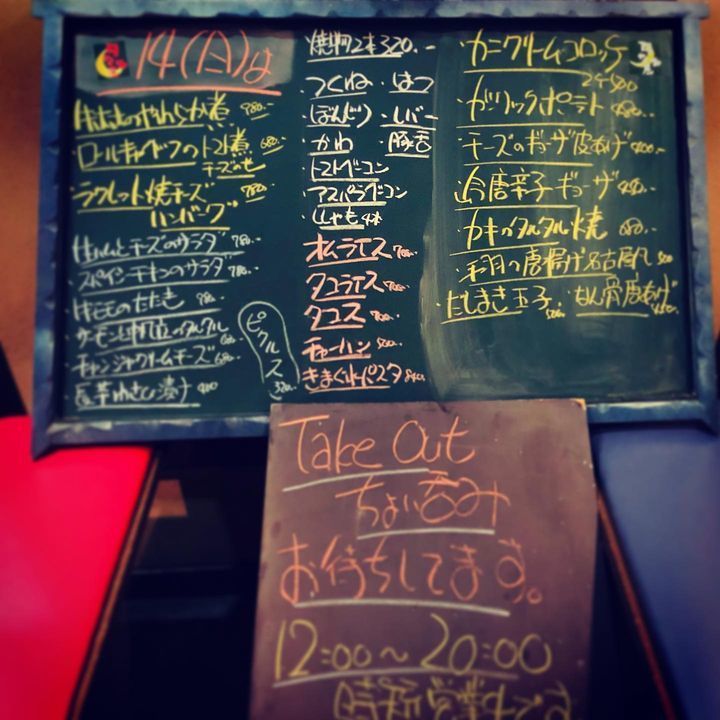 14(日)は
やわらか煮 780.-
ロールキャベツのトマト煮 680.-
チーズのせ
ラクレット焼チーズ 780.-
ハンバーグ
生ハムとチーズのサラダ 780.-
スペイン サラダ 780.-
のたたき 780.-
サーモンと タルタル
チャンジャクリームチーズ 680.-
長芋わさび漬け 400
ピクルス 320.-
焼物2本320.-
つくね はつ
ぼんじり レバー
かわ 豚舌
トマトベーコン
アスパラベーコン
ししゃも 4本
オムライス
タコライス
タコス
チャーハン
きまぐれパスタ
カニクリームコロッケ
2ケ
ガリックポテト
チーズのギョーザ皮あげ
唐辛子ギョーザ
カキのタルタル焼
手羽の唐揚げ名古屋風
だしまき玉子 なん骨唐あげ
Take Out
ちょい呑み
お待ちしてます。
12:00~20:00
時短営業中です